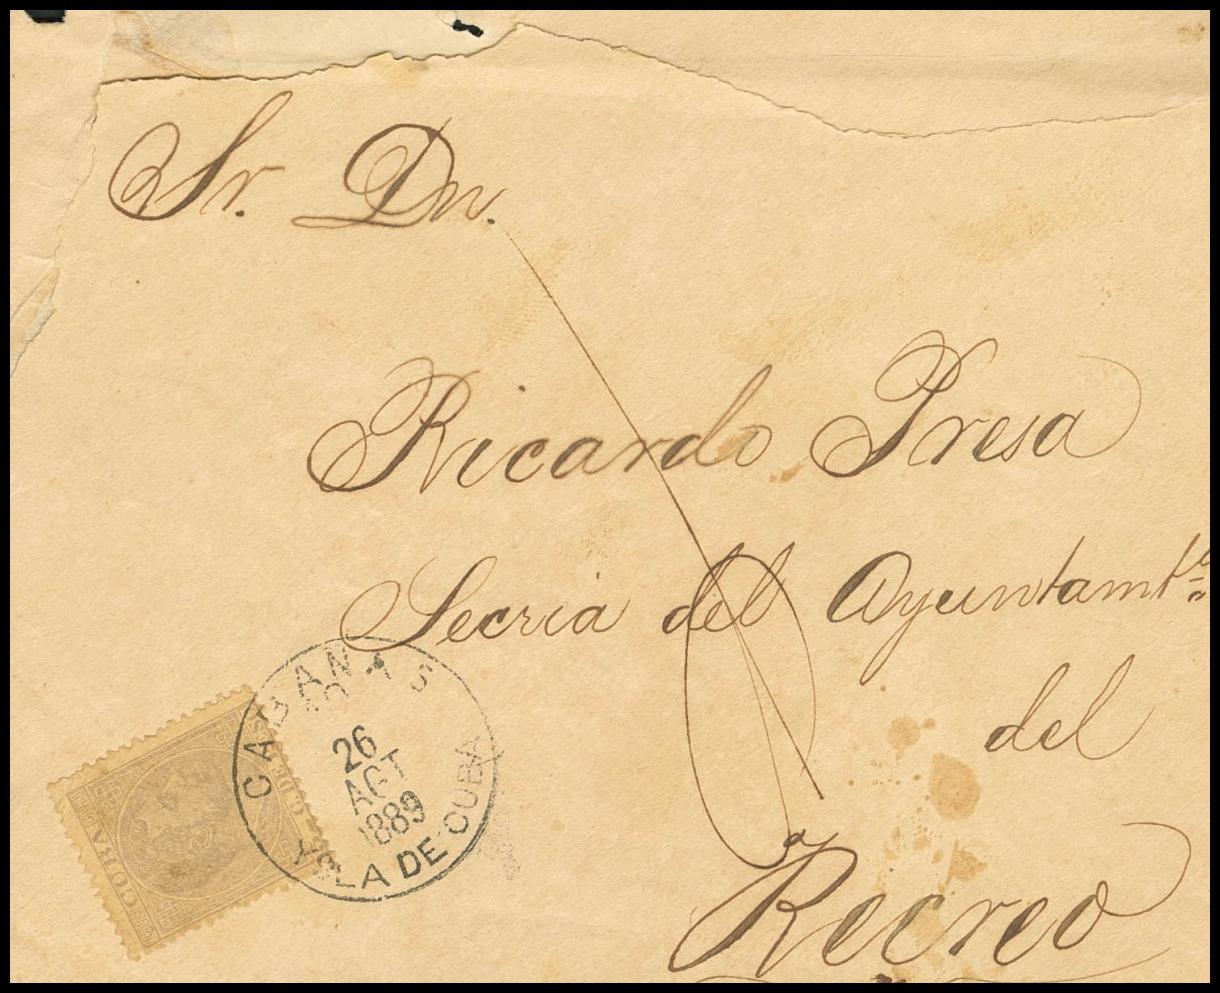 Sr. Dn.
Ricardo Presa
Secria del Ayuntamto
del
Recreo
CABANAS
26
AGT
1889
ISLA DE CUBA
CUBA